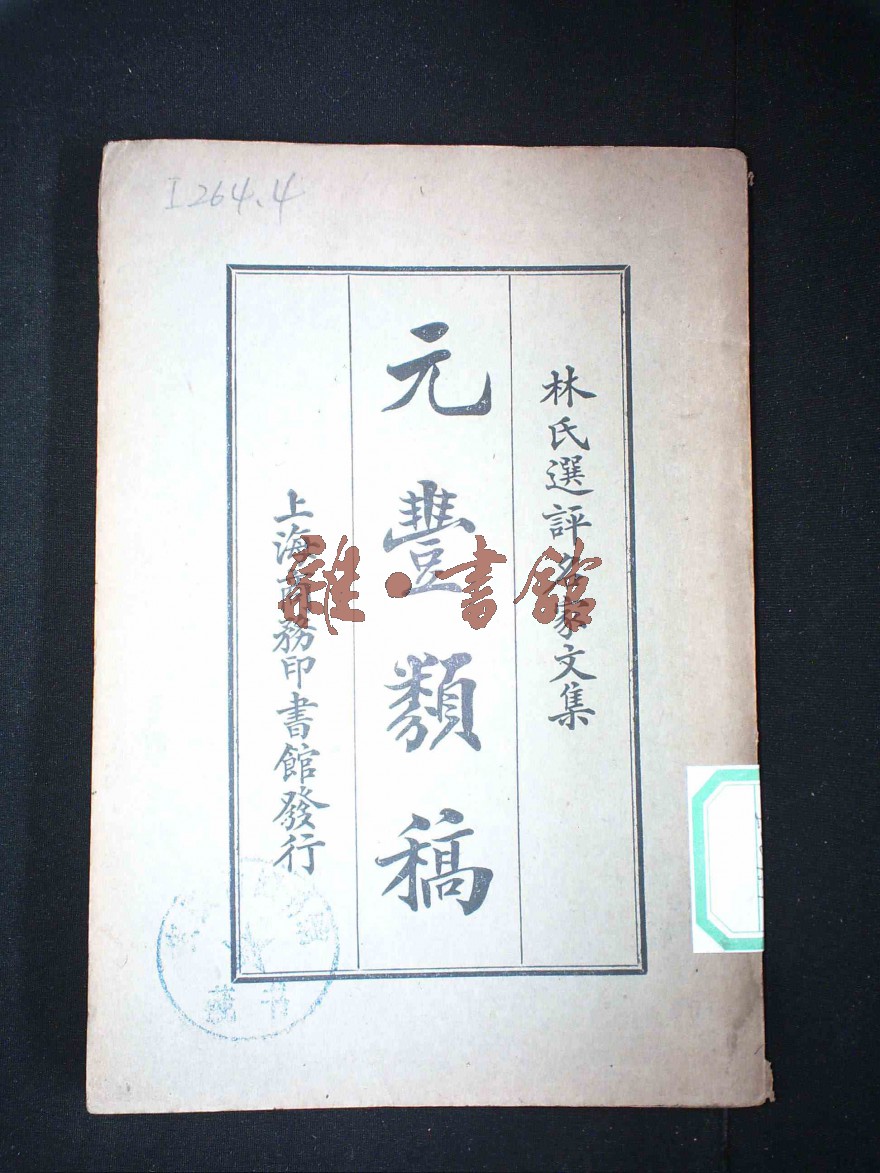 I264.4
林氏選評名家文集
元豐類稿
上海商務印書館發行
雜·書館
藏书